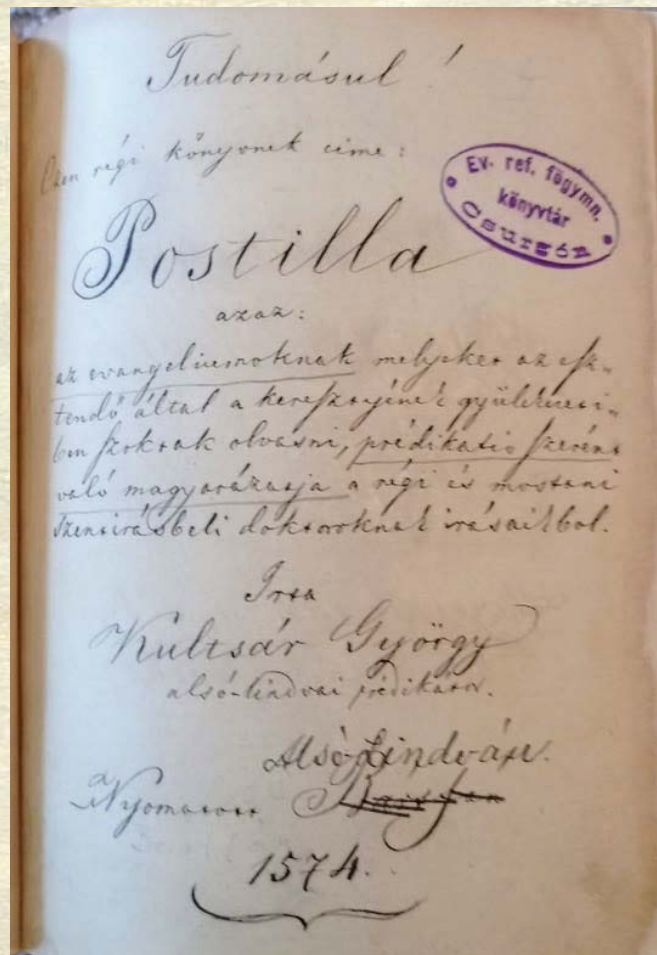 Tudomásul!
Ezen régi könyvnek cime:
Ev. ref. főgymn.
könyvtár
Csurgón
Postilla
azaz:
az evangeliumoknak melyeket az esz-
tendő által a keresztyének gyülekezeti-
ben szoktak olvasni, prédikatio szerént
való magyarázatja a régi és mostani
szentirásbeli doktoroknak irásaikbol.
Irta
Kultsár György
alsó-lindvai prédikátor.
Alsó Lindván.
Nyomatott
1574.